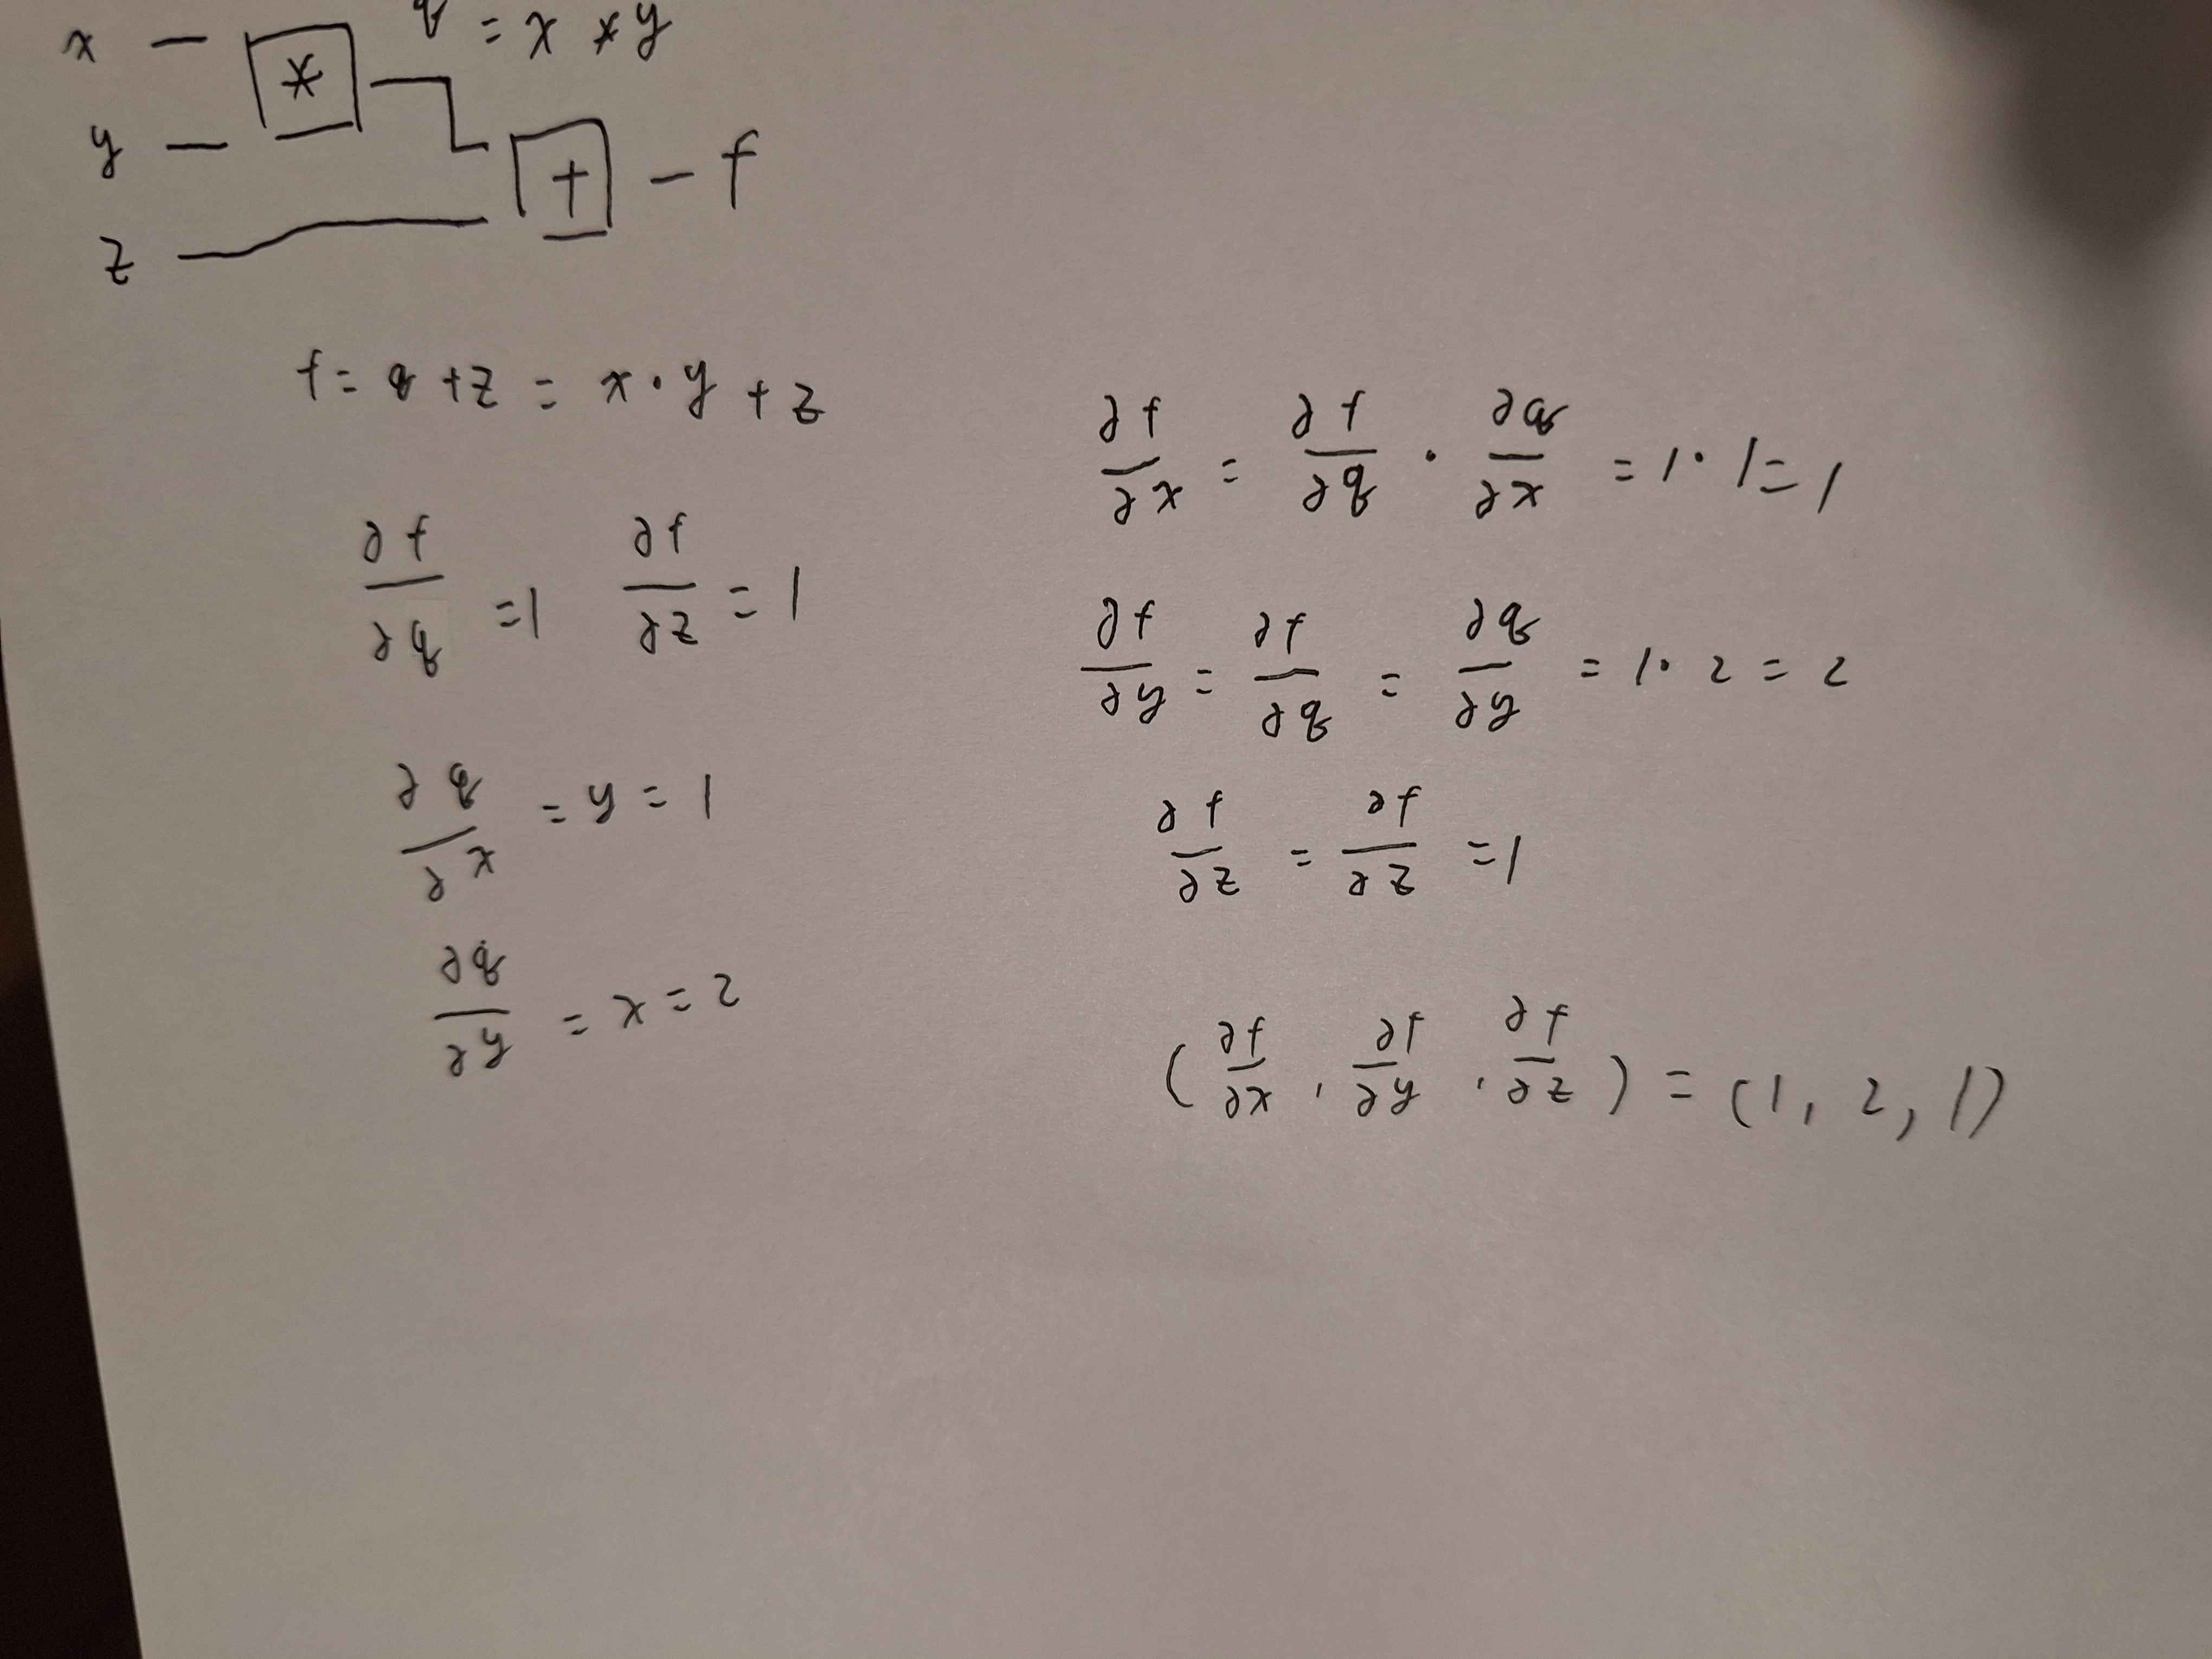 x — * q = x * y
y —
+ — f
z —
f = q + z = x · y + z
∂f/∂q = 1 ∂f/∂z = 1
∂q/∂x = y = 1
∂q/∂y = x = 2
∂f/∂x = ∂f/∂q · ∂q/∂x = 1 · 1 = 1
∂f/∂y = ∂f/∂q = ∂q/∂y = 1 · 2 = 2
∂f/∂z = ∂f/∂z = 1
(∂f/∂x, ∂f/∂y, ∂f/∂z) = (1, 2, 1)